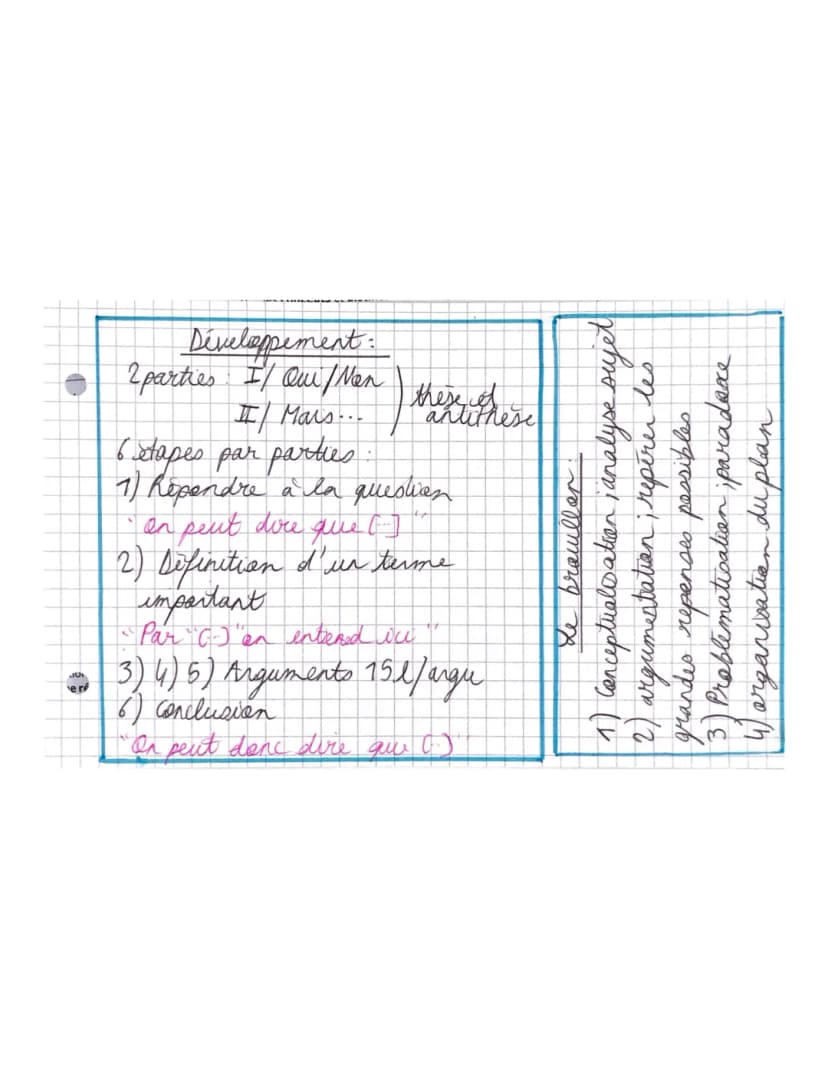 Développement :
2 parties : I/ Oui/Non
II/ Mais...
thèse et
antithèse
6 étapes par parties :
1) Répondre à la question
"on peut dire que [...]"
2) Définition d'un terme
important
"Par "(...)" on entend ici"
3) 4) 5) Arguments 15l/argu
6) conclusion
"On peut donc dire que (...)"
Le brouillon :
1) Conceptualisation ; analyse sujet
2) argumentation ; repérer les
grandes reponses possibles
3) Problématisation ; paradoxe
4) organisation du plan